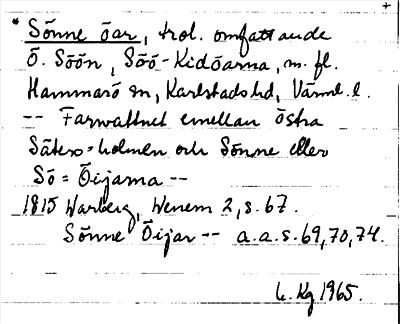 * Sönne öar, trol. omfattande
Ö. Söön, Söö-Kidöarna, m. fl.
Hammarö sn, Karlstads hd, Värml. l.
-- Farwattnet emellan östra
Säters=holmen och Sönne eller
Sö=Öijarna --
1815 Warberg, Wenern 2, s. 67.
Sönne Öijar -- a.a.s. 69, 70, 74.
1965.